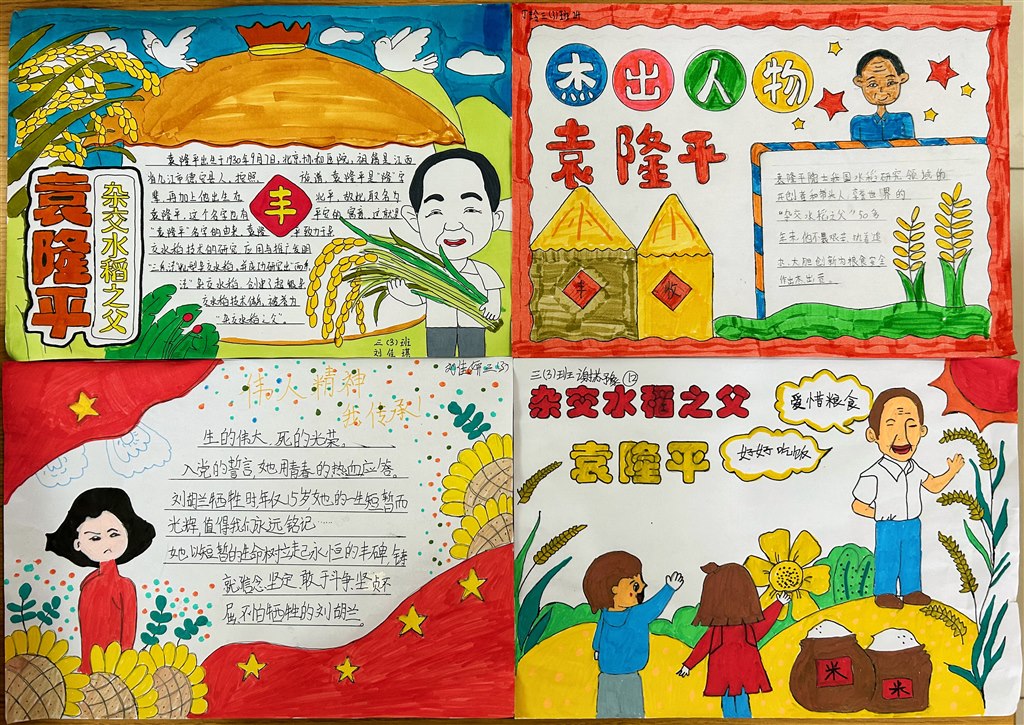 袁隆平
杂交水稻之父
袁隆平出生于1930年9月7日,北京协和医院,祖籍是江西
省九江市德安县人,按照 族谱,袁隆平是"隆"字
辈,再加上他出生在 北平,故此取名为
袁隆平,这个名字也有 平安的寓意,这就是
丰
"袁隆平"名字的由来,袁隆平致力于杂
交水稻技术的研究,应用与推广,发明
"三系法"籼型杂交水稻,并成功研究出"两系
法"杂交水稻,创建了超级杂
交水稻技术体系,被誉为
"杂交水稻之父"。
三(3)班
刘佳琪
三(3)班
杰出人物
袁隆平
袁隆平院士我国水稻研究领域的
开创者和带头人 享誉世界的
"杂交水稻之父"50多
年来,他不畏艰辛,执着追
求,大胆创新为粮食安全
作出杰出贡。
丰
收
三(3)
伟人精神
我传承!
生的伟大,死的光荣。
入党的誓言,她用青春的热血应答。
刘胡兰牺牲时年仅15岁她的一生短暂而
光辉,值得我们永远铭记……
她以短暂的生命树立起永恒的丰碑,铸
就信念坚定,敢于斗争,坚贞不
屈,不怕牺牲的刘胡兰。
三(3)班 12
杂交水稻之父
袁隆平
爱惜粮食
好好吃饭
米
米